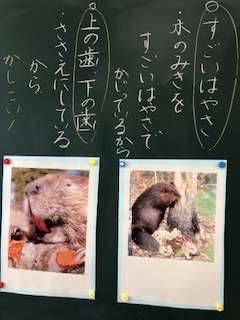 すごいはやさ
・木のみきを
すごいはやさで
かじっているから
上の歯、下の歯
・ささえにしている
から
かしこい!